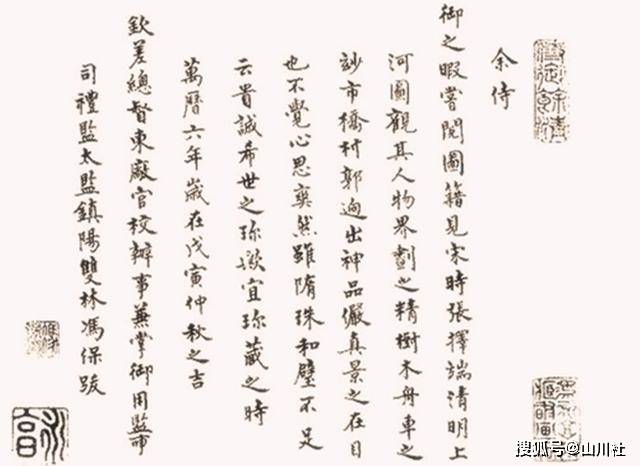 余侍
御之暇嘗閱圖籍見宋時張擇端清明上
河圖觀其人物界劃之精樹木舟車之
玅市橋村郭迥出神品儼真景之在目
也不覺心思爽然雖隋珠和璧不足
云貴誠希世之珎歟宜珎藏之時
萬曆六年歲在戊寅仲秋之吉
欽差總督東廠官校辦事兼掌御用監事
司禮監太監鎮陽雙林馮保跋
搜狐号@山川社